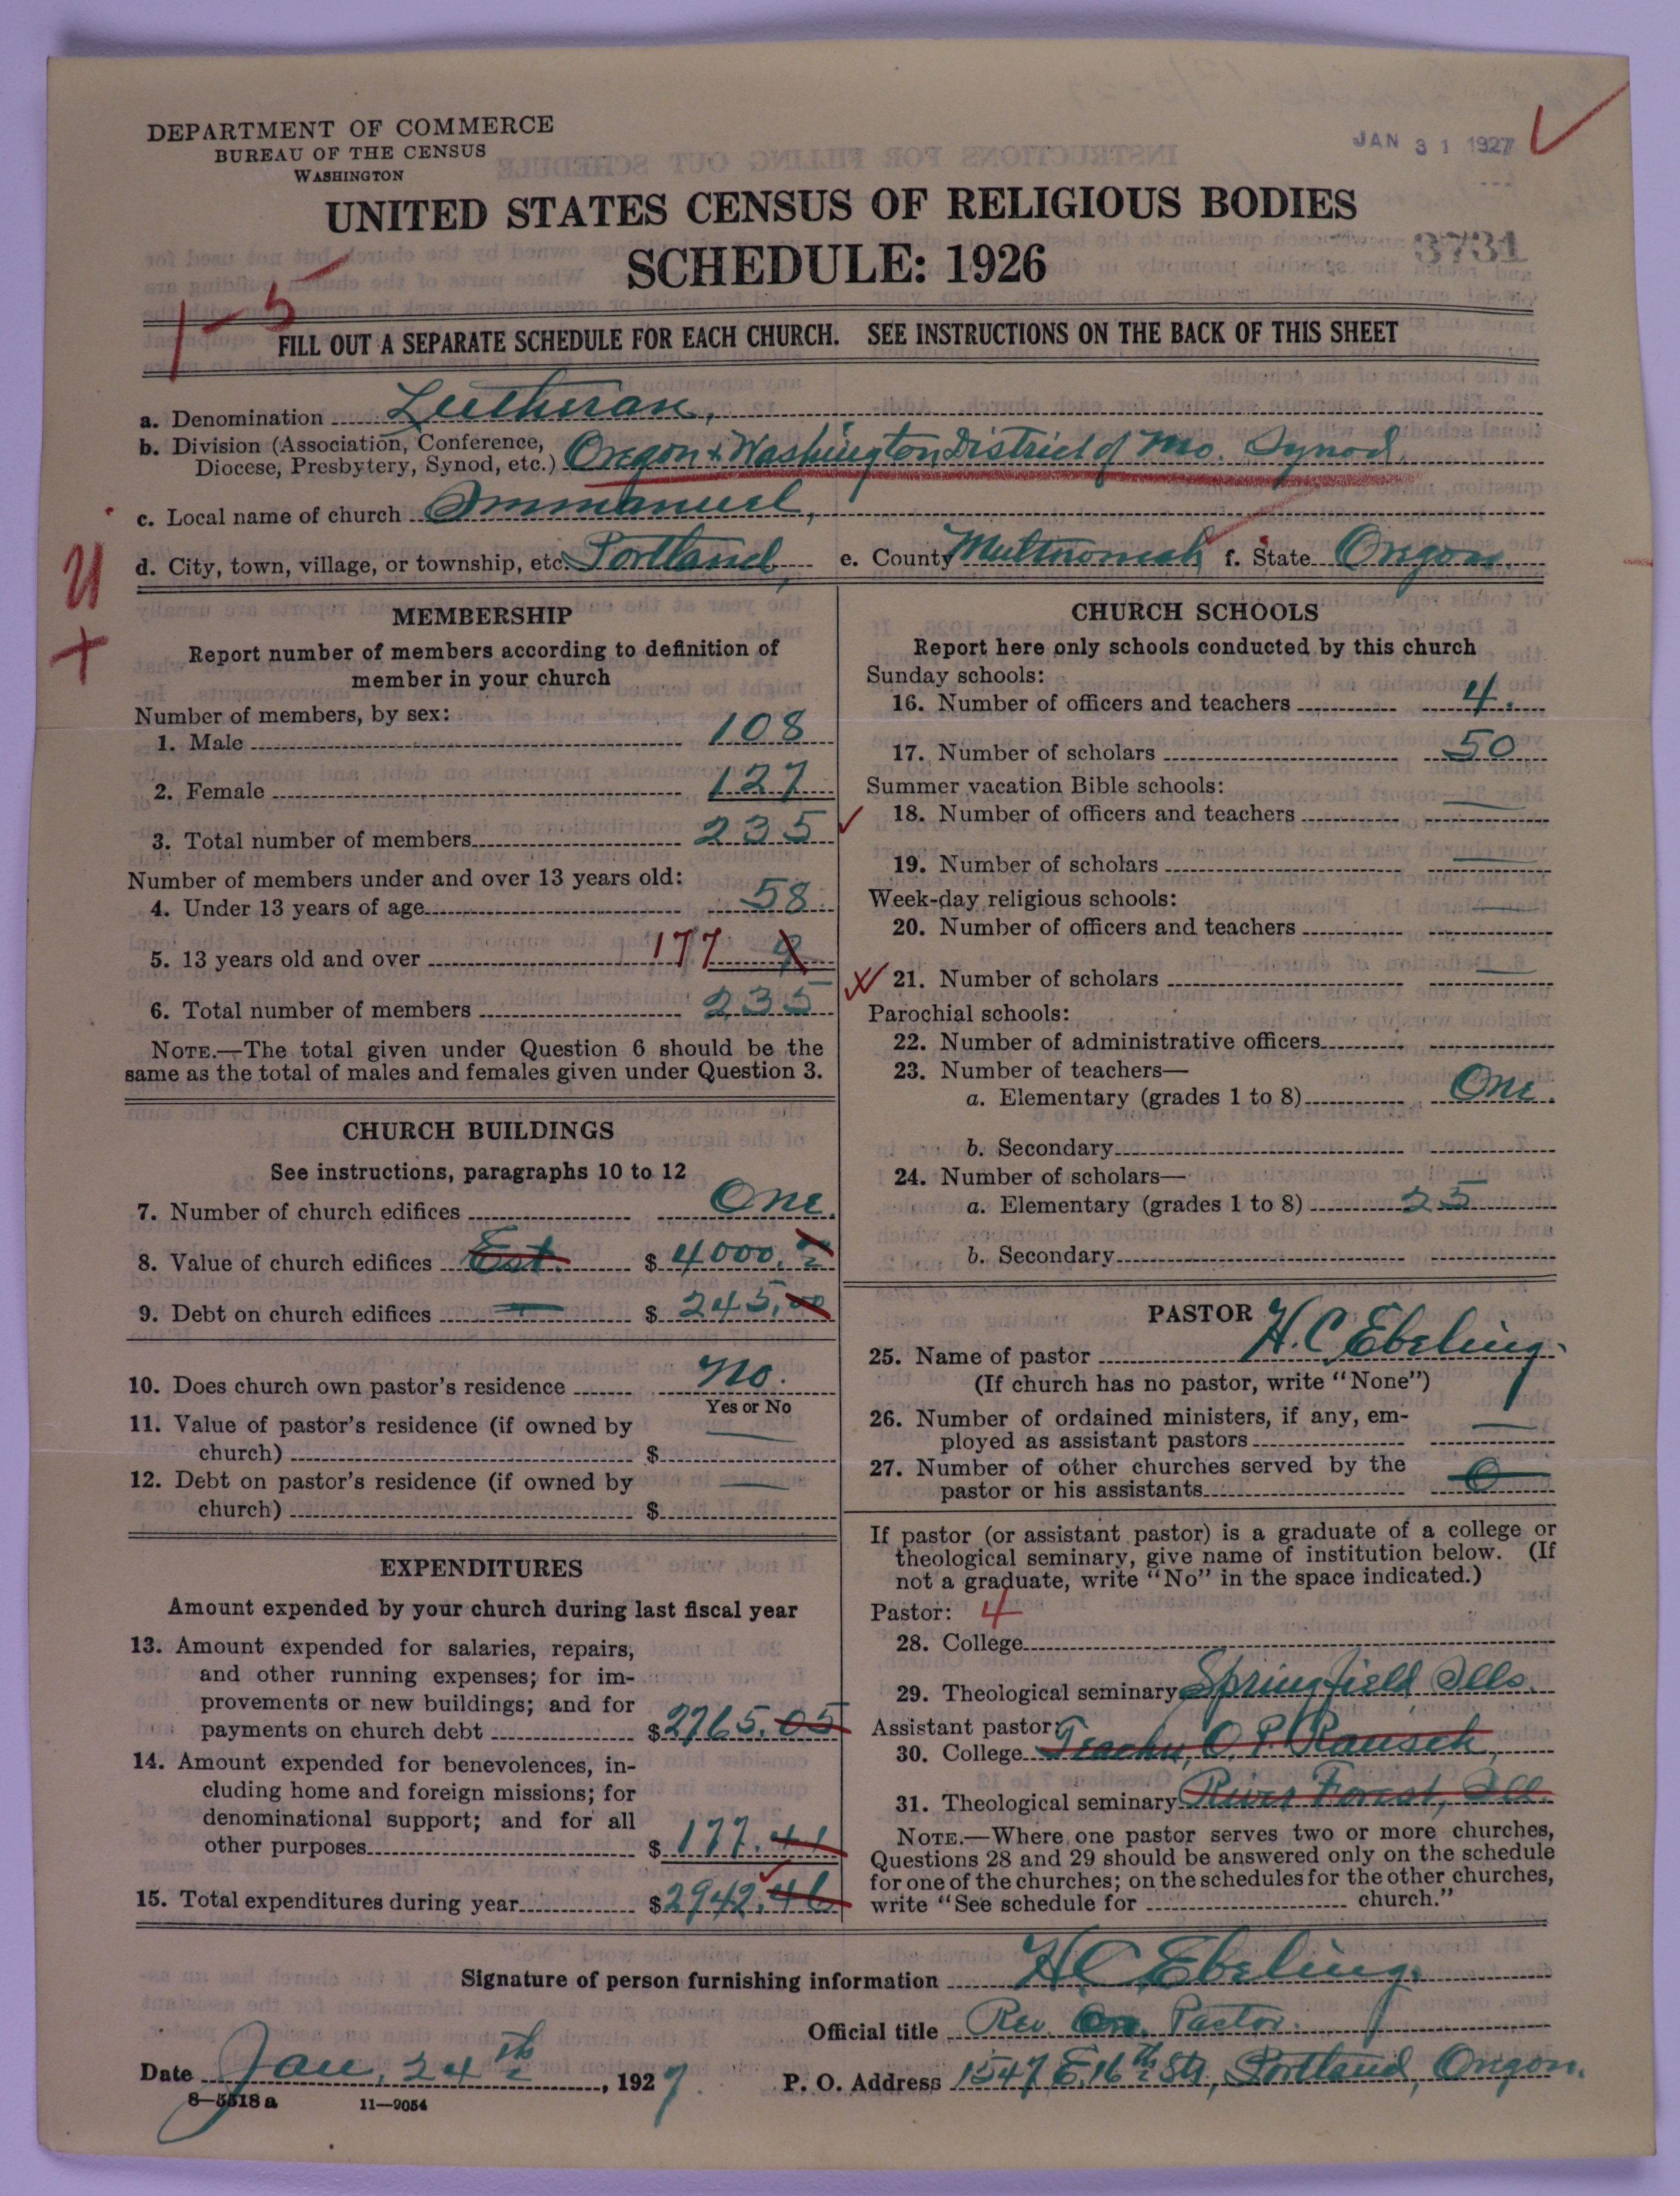 DEPARTMENT OF COMMERCE
BUREAU OF THE CENSUS
WASHINGTON
JAN 31 1927
UNITED STATES CENSUS OF RELIGIOUS BODIES
SCHEDULE: 1926
3731
1-5
FILL OUT A SEPARATE SCHEDULE FOR EACH CHURCH. SEE INSTRUCTIONS ON THE BACK OF THIS SHEET
a. Denomination Lutheran,
b. Division (Association, Conference,
Diocese, Presbytery, Synod, etc.) Oregon + Washington District of Mo. Synod
c. Local name of church Immanuel,
d. City, town, village, or township, etc. Portland, e. County Multnomah f. State Oregon
MEMBERSHIP
Report number of members according to definition of
member in your church
Number of members, by sex:
1. Male 108
2. Female 127
3. Total number of members 235
Number of members under and over 13 years old:
4. Under 13 years of age 58
5. 13 years old and over 177
6. Total number of members 235
NOTE.—The total given under Question 6 should be the
same as the total of males and females given under Question 3.
CHURCH BUILDINGS
See instructions, paragraphs 10 to 12
7. Number of church edifices One.
8. Value of church edifices Est. $ 4000.
9. Debt on church edifices $ 245.00
10. Does church own pastor's residence No.
Yes or No
11. Value of pastor's residence (if owned by
church) $
12. Debt on pastor's residence (if owned by
church) $
EXPENDITURES
Amount expended by your church during last fiscal year
13. Amount expended for salaries, repairs,
and other running expenses; for im-
provements or new buildings; and for
payments on church debt $2765.05
14. Amount expended for benevolences, in-
cluding home and foreign missions; for
denominational support; and for all
other purposes $177.41
15. Total expenditures during year $2942.46
CHURCH SCHOOLS
Report here only schools conducted by this church
Sunday schools:
16. Number of officers and teachers 4.
17. Number of scholars 50
Summer vacation Bible schools:
18. Number of officers and teachers
19. Number of scholars
Week-day religious schools:
20. Number of officers and teachers
21. Number of scholars
Parochial schools:
22. Number of administrative officers
23. Number of teachers—
a. Elementary (grades 1 to 8) One.
b. Secondary
24. Number of scholars—
a. Elementary (grades 1 to 8) 25
b. Secondary
PASTOR
25. Name of pastor H. C. Ebeling.
(If church has no pastor, write "None")
26. Number of ordained ministers, if any, em-
ployed as assistant pastors
27. Number of other churches served by the
pastor or his assistants 0
If pastor (or assistant pastor) is a graduate of a college or
theological seminary, give name of institution below. (If
not a graduate, write "No" in the space indicated.)
Pastor: 4
28. College
29. Theological seminary Springfield Ills.
Assistant pastor:
30. College Teacher, O. P. Rausch,
31. Theological seminary River Forest, Ill.
NOTE.—Where one pastor serves two or more churches,
Questions 28 and 29 should be answered only on the schedule
for one of the churches; on the schedules for the other churches,
write "See schedule for church."
Signature of person furnishing information H C Ebeling.
Official title Rev. Pastor.
Date Jan. 24th, 1927. P. O. Address 1547 E. 16th Str., Portland, Oregon.
8—5518 a 11—9054